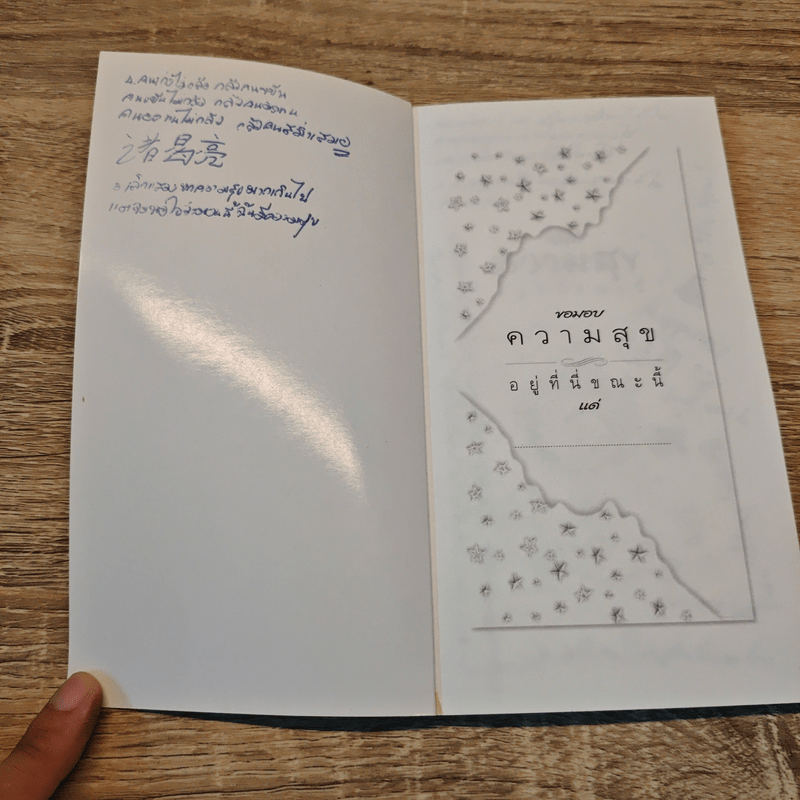 4. คนเก่งไม่กลัว กลัวคนขยัน
คนขยันไม่กลัว กลัวคนอดทน
คนอดทนไม่กลัว กลัวคนสม่ำเสมอ
诸葛亮
หาความสุขมากเกินไป
ขอมอบ
ความสุข
อยู่ที่นี่ขณะนี้
แด่